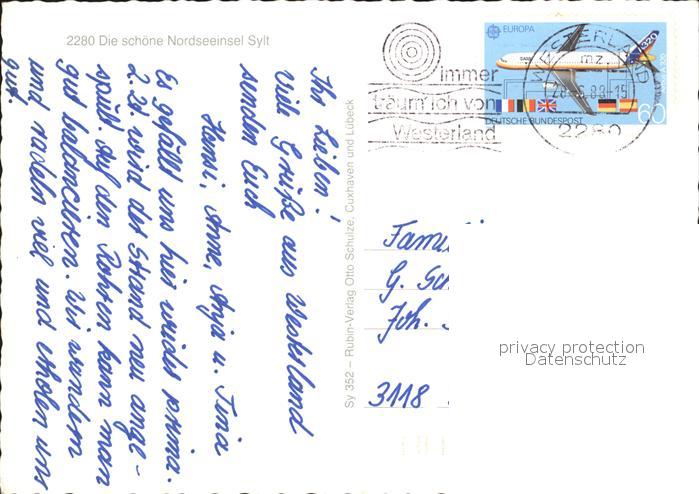 2280 Die schöne Nordseeinsel Sylt
Ihr Lieben!
Viele Grüße aus Westerland
senden Euch
Henni, Anne, Anja u. Tina
Es gefällt uns hier wieder prima.
Z.Zt. wird der Strand neu ange-
spült. Auf den Rohren kann man
gut balancieren. Wir wandern
und radeln viel und erholen uns
gut.
Sy 352 – Rubin-Verlag Otto Schulze, Cuxhaven und Lübeck
immer
träum' ich von
Westerland
WESTERLAND
mz
-15
2280
EUROPA
320
60
DEUTSCHE BUNDESPOST
Fami
G. Sc
Joh.
3118
privacy protection
Datenschutz